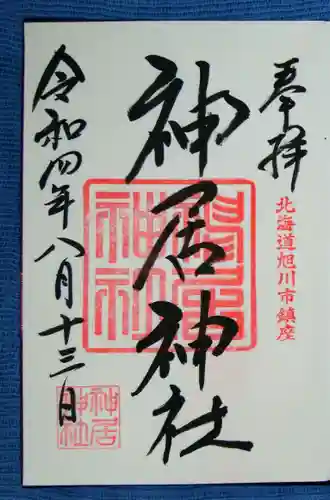 奉拝
北海道旭川市鎮座
神居神社
神居神社
令和四年八月十三日
神居神社